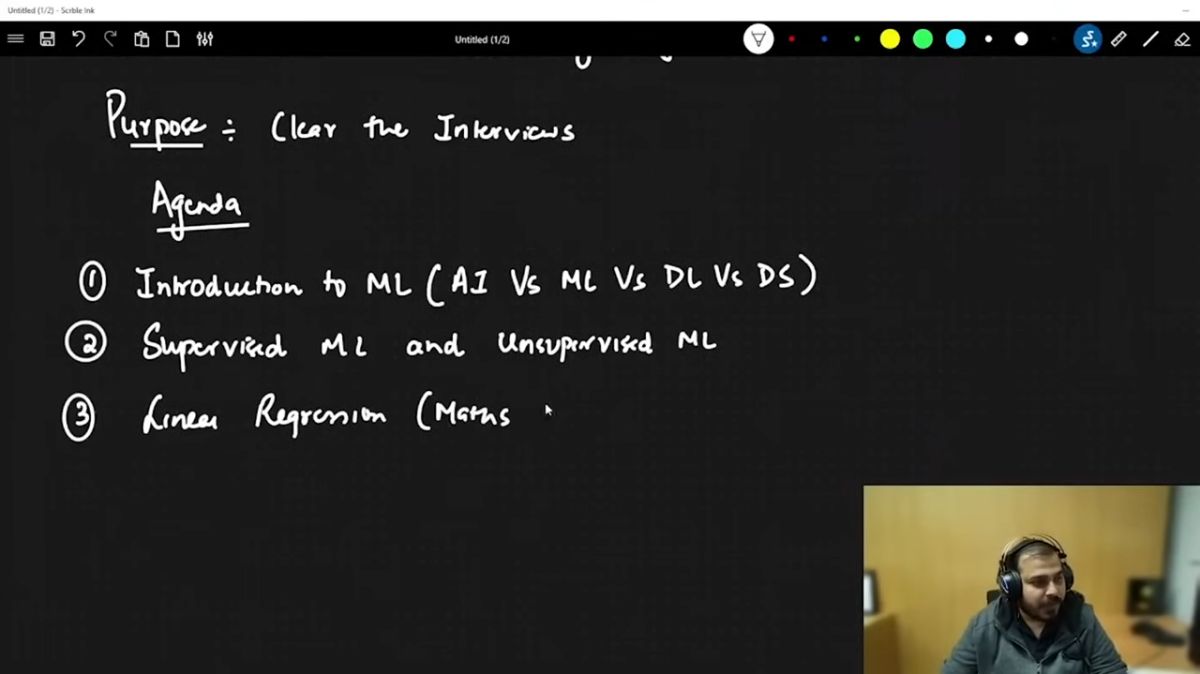 Untitled (1/2) - Scrble Ink
Untitled (1/2)
Purpose ÷ Clear the Interviews
Agenda
① Introduction to ML (AI Vs ML Vs DL Vs DS)
② Supervised ML and Unsupervised ML
③ Linear Regression (Maths